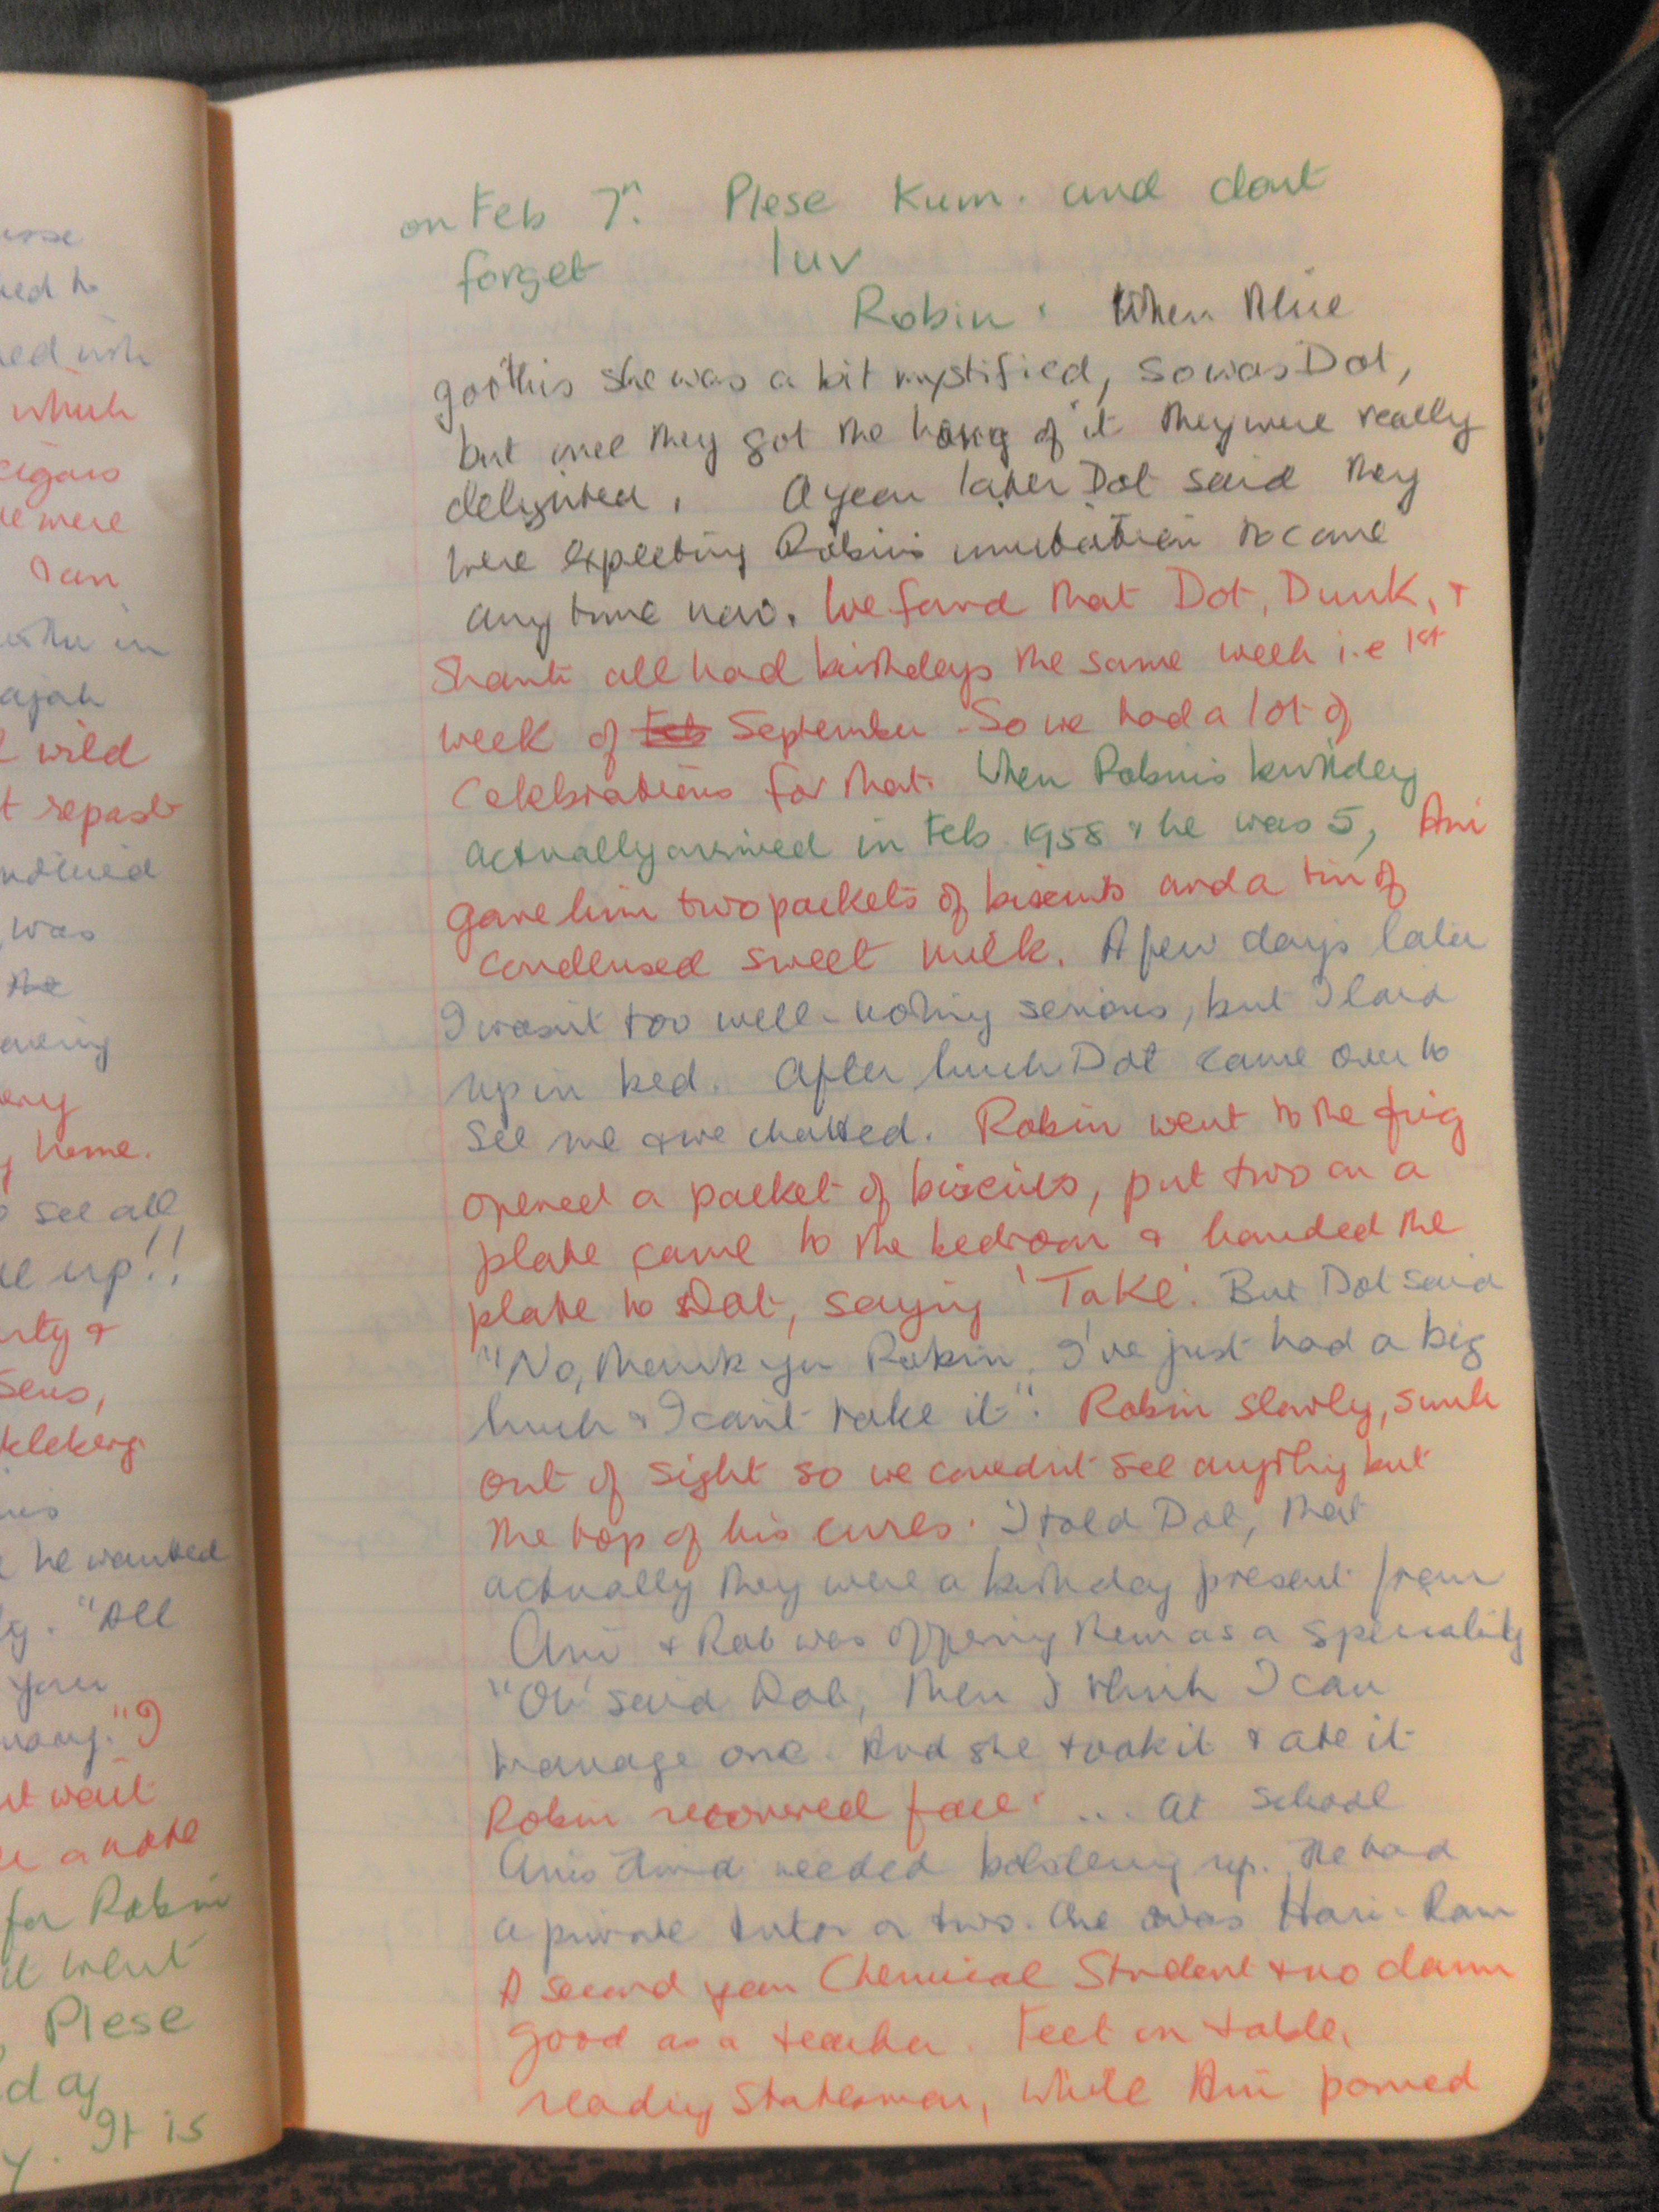 on Feb 7n. Plese Kum. and dont
forget luv
Robin. When
got this she was a bit mystified, so was Dot,
but once they got the hang of it they were really
delighted. A year later Dot said they
were expecting Robin's invitation to come
any time now. We found that Dot, Dunk, +
Shanti all had birthdays the same week i.e 1st
week of Feb September - So we had a lot of
Celebrations for that. When Robin's birthday
actually arrived in Feb 1958 & he was 5, Ani
gave him two packets of biscuits and a tin of
condensed sweet milk. A few days later
I wasn't too well - nothing serious, but I laid
up in bed. After lunch Dot came over to
see me & we chatted. Robin went to the frig
opened a packet of biscuits, put two on a
plate came to the bedroom & handed the
plate to Dot, saying 'Take'. But Dot said
"No, thank you Robin, I've just had a big
lunch & I can't take it". Robin slowly, sunk
out of sight so we couldn't see anything but
the top of his curls. I told Dot, that
actually they were a birthday present from
Ani & Rob was offering them as a speciality
"Oh' said Dot, then I think I can
manage one. And she took it & ate it
Robin recovered face. ... At School
Anis Hindi needed bolstering up. He had
a private tutor or two. One was Hari-Ram
A second year Chemical Student & no damn
good as a teacher. Feet on table,
reading Statesman, while Ani
which
cigars
were
Ian
in
wild
repast
was
the
home.
see all
up!!
Sens,
he wanted
"All
you
I
wait
a note
for Robin
went
Plese
day
It is